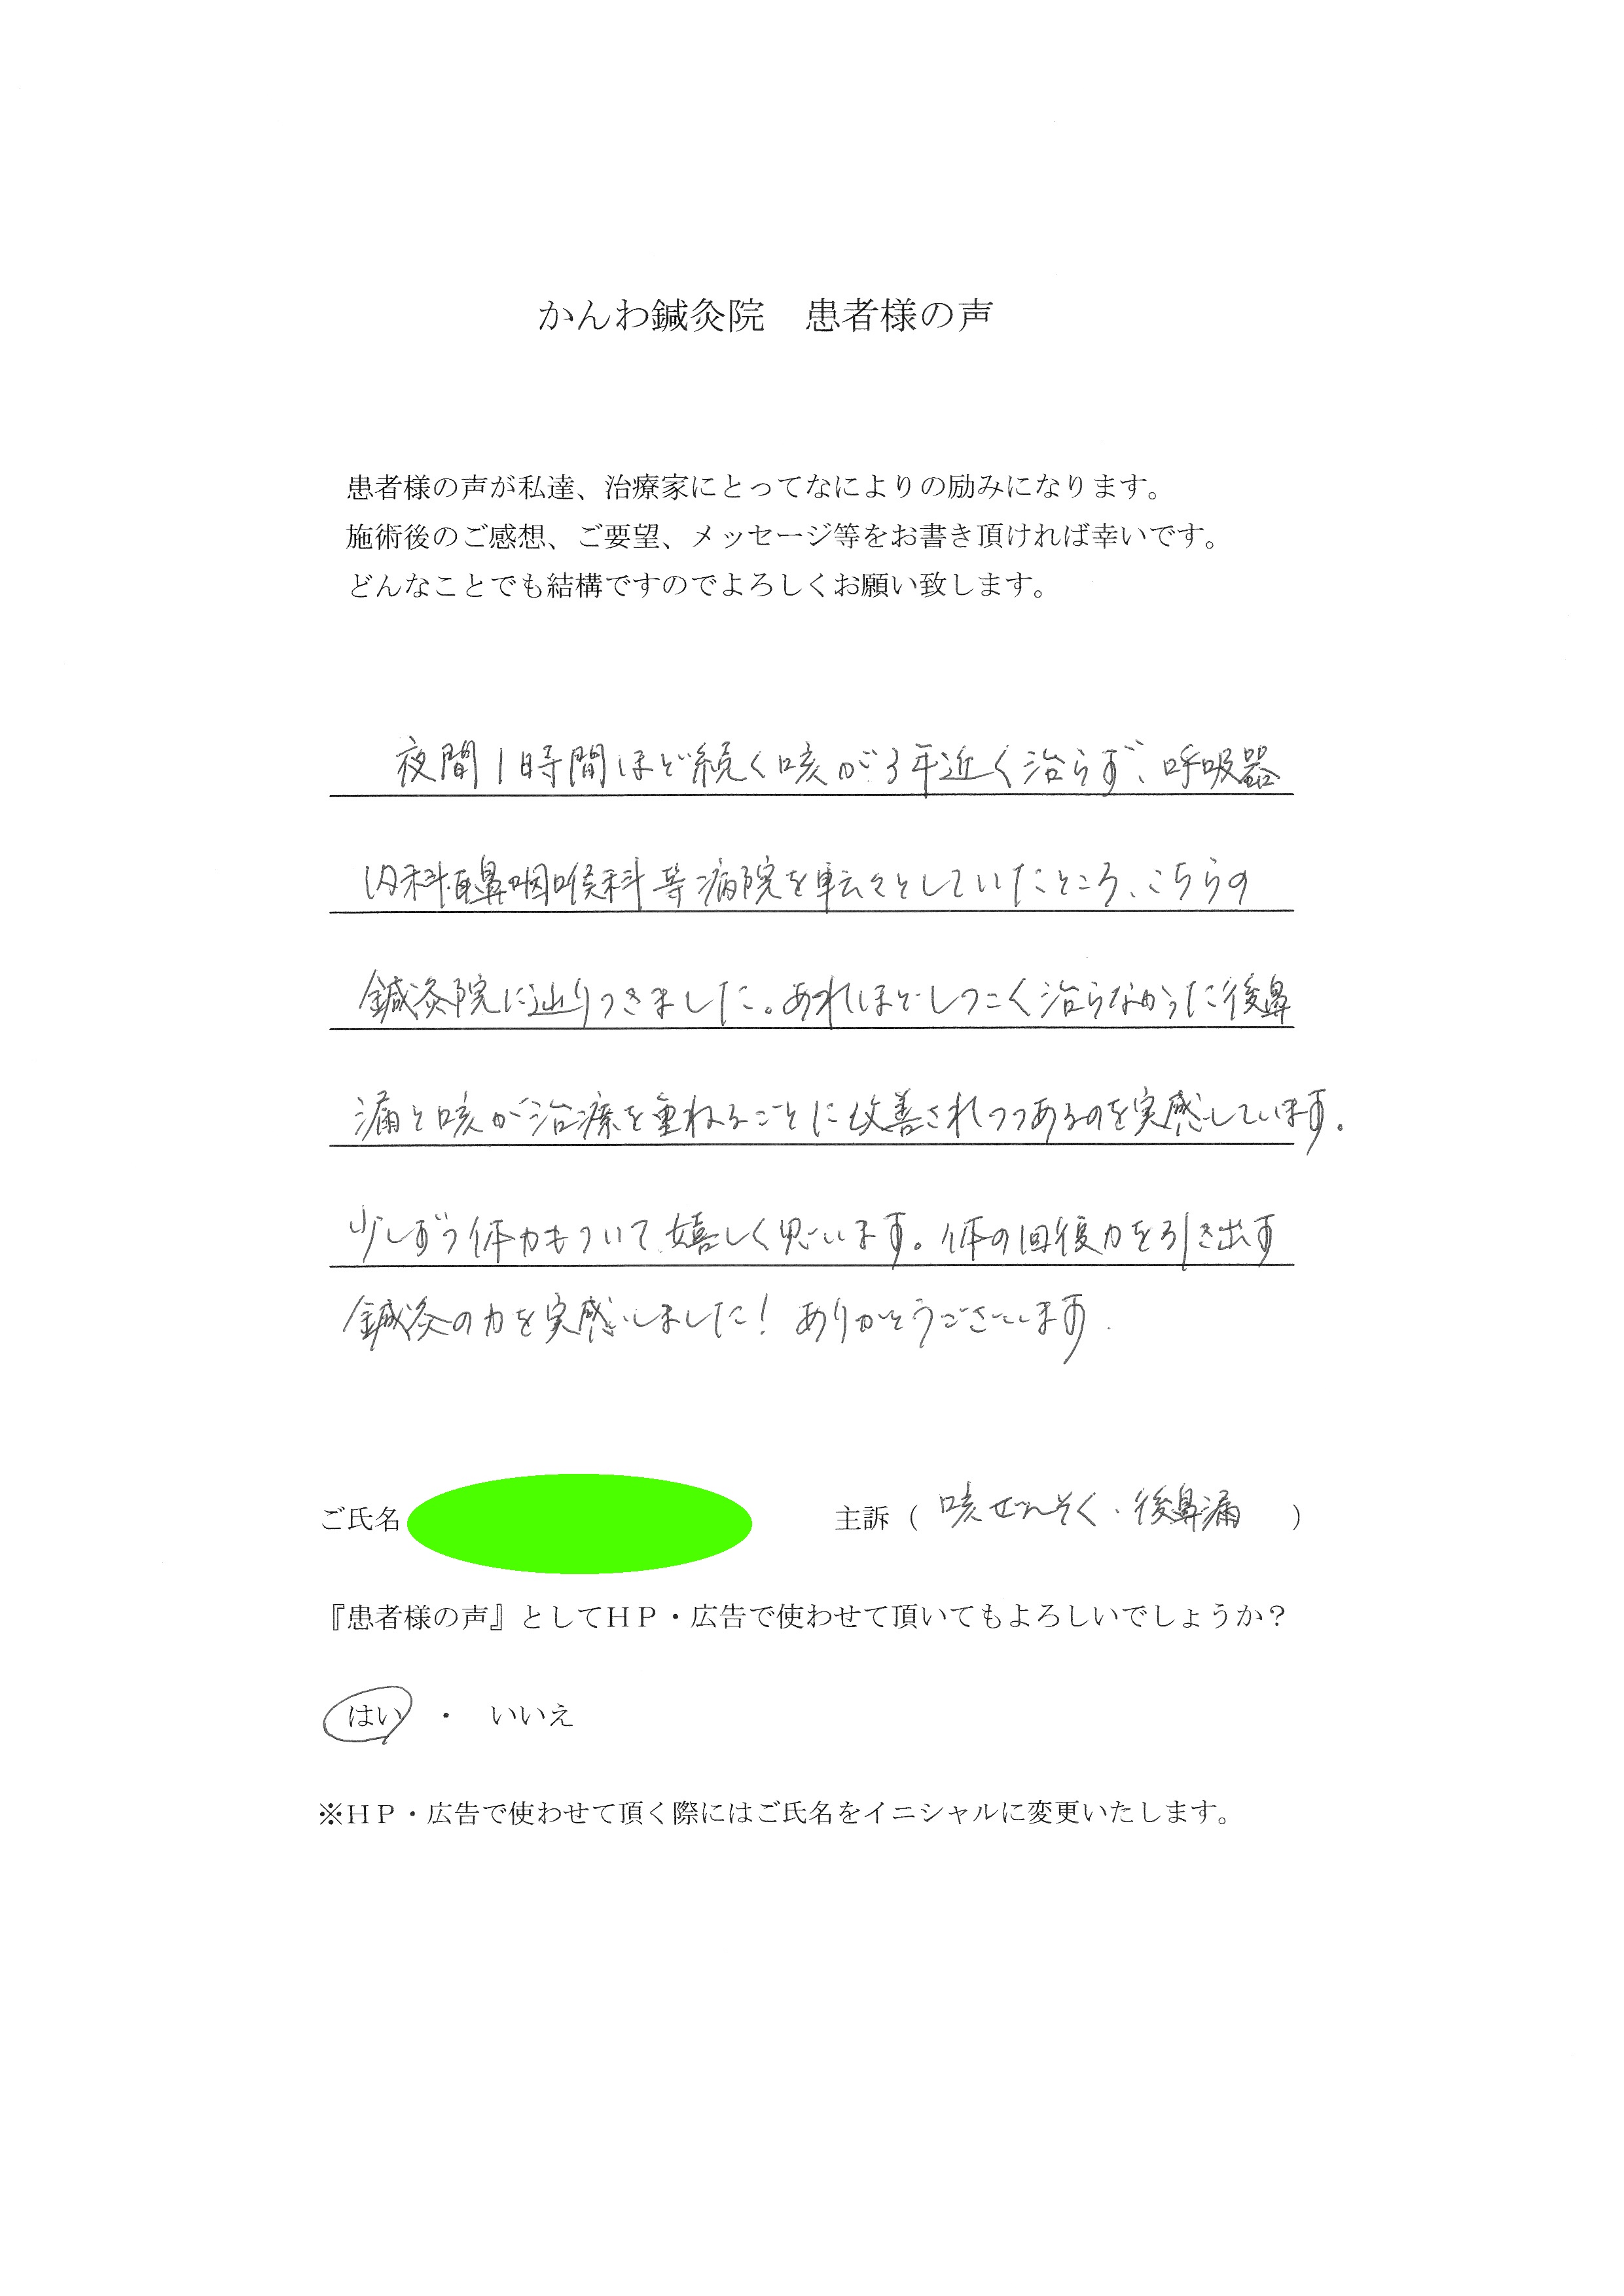 かんわ鍼灸院　患者様の声
患者様の声が私達、治療家にとってなによりの励みになります。
施術後のご感想、ご要望、メッセージ等をお書き頂ければ幸いです。
どんなことでも結構ですのでよろしくお願い致します。
夜間1時間ほど続く咳が3年近く治らず、呼吸器
内科・耳鼻咽喉科等病院を転々としていたところ、こちらの
鍼灸院に辿りつきました。あれほどしつこく治らなかった後鼻
漏と咳が治療を重ねるごとに改善されつつあるのを実感しています。
少しずつ体力もついて嬉しく思います。体の回復力を引き出す
鍼灸の力を実感しました！ありがとうございます.
ご氏名　主訴（咳ぜんそく・後鼻漏）
『患者様の声』としてＨＰ・広告で使わせて頂いてもよろしいでしょうか？
はい　・　いいえ
※ＨＰ・広告で使わせて頂く際にはご氏名をイニシャルに変更いたします。